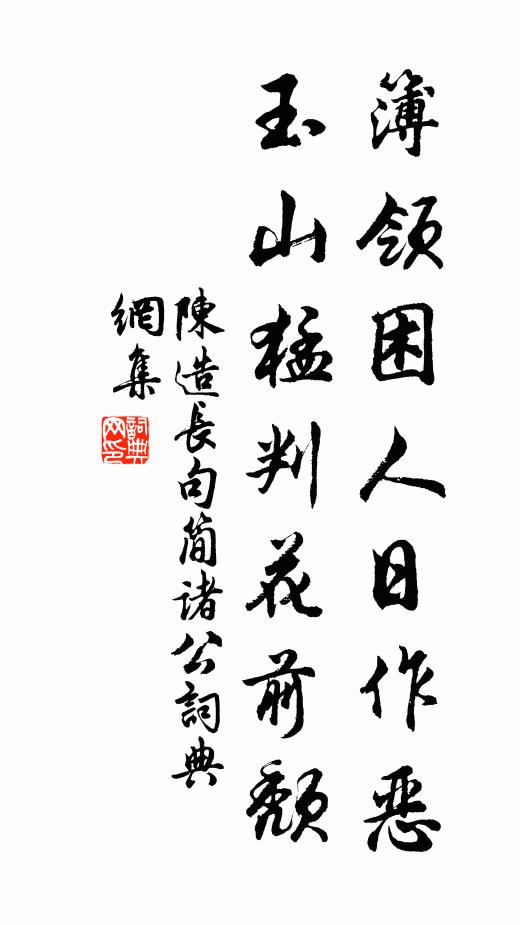 簿领困人日作恶
玉山猛判花前颓
陳造長句简諸公詞典
網集
詞典网印